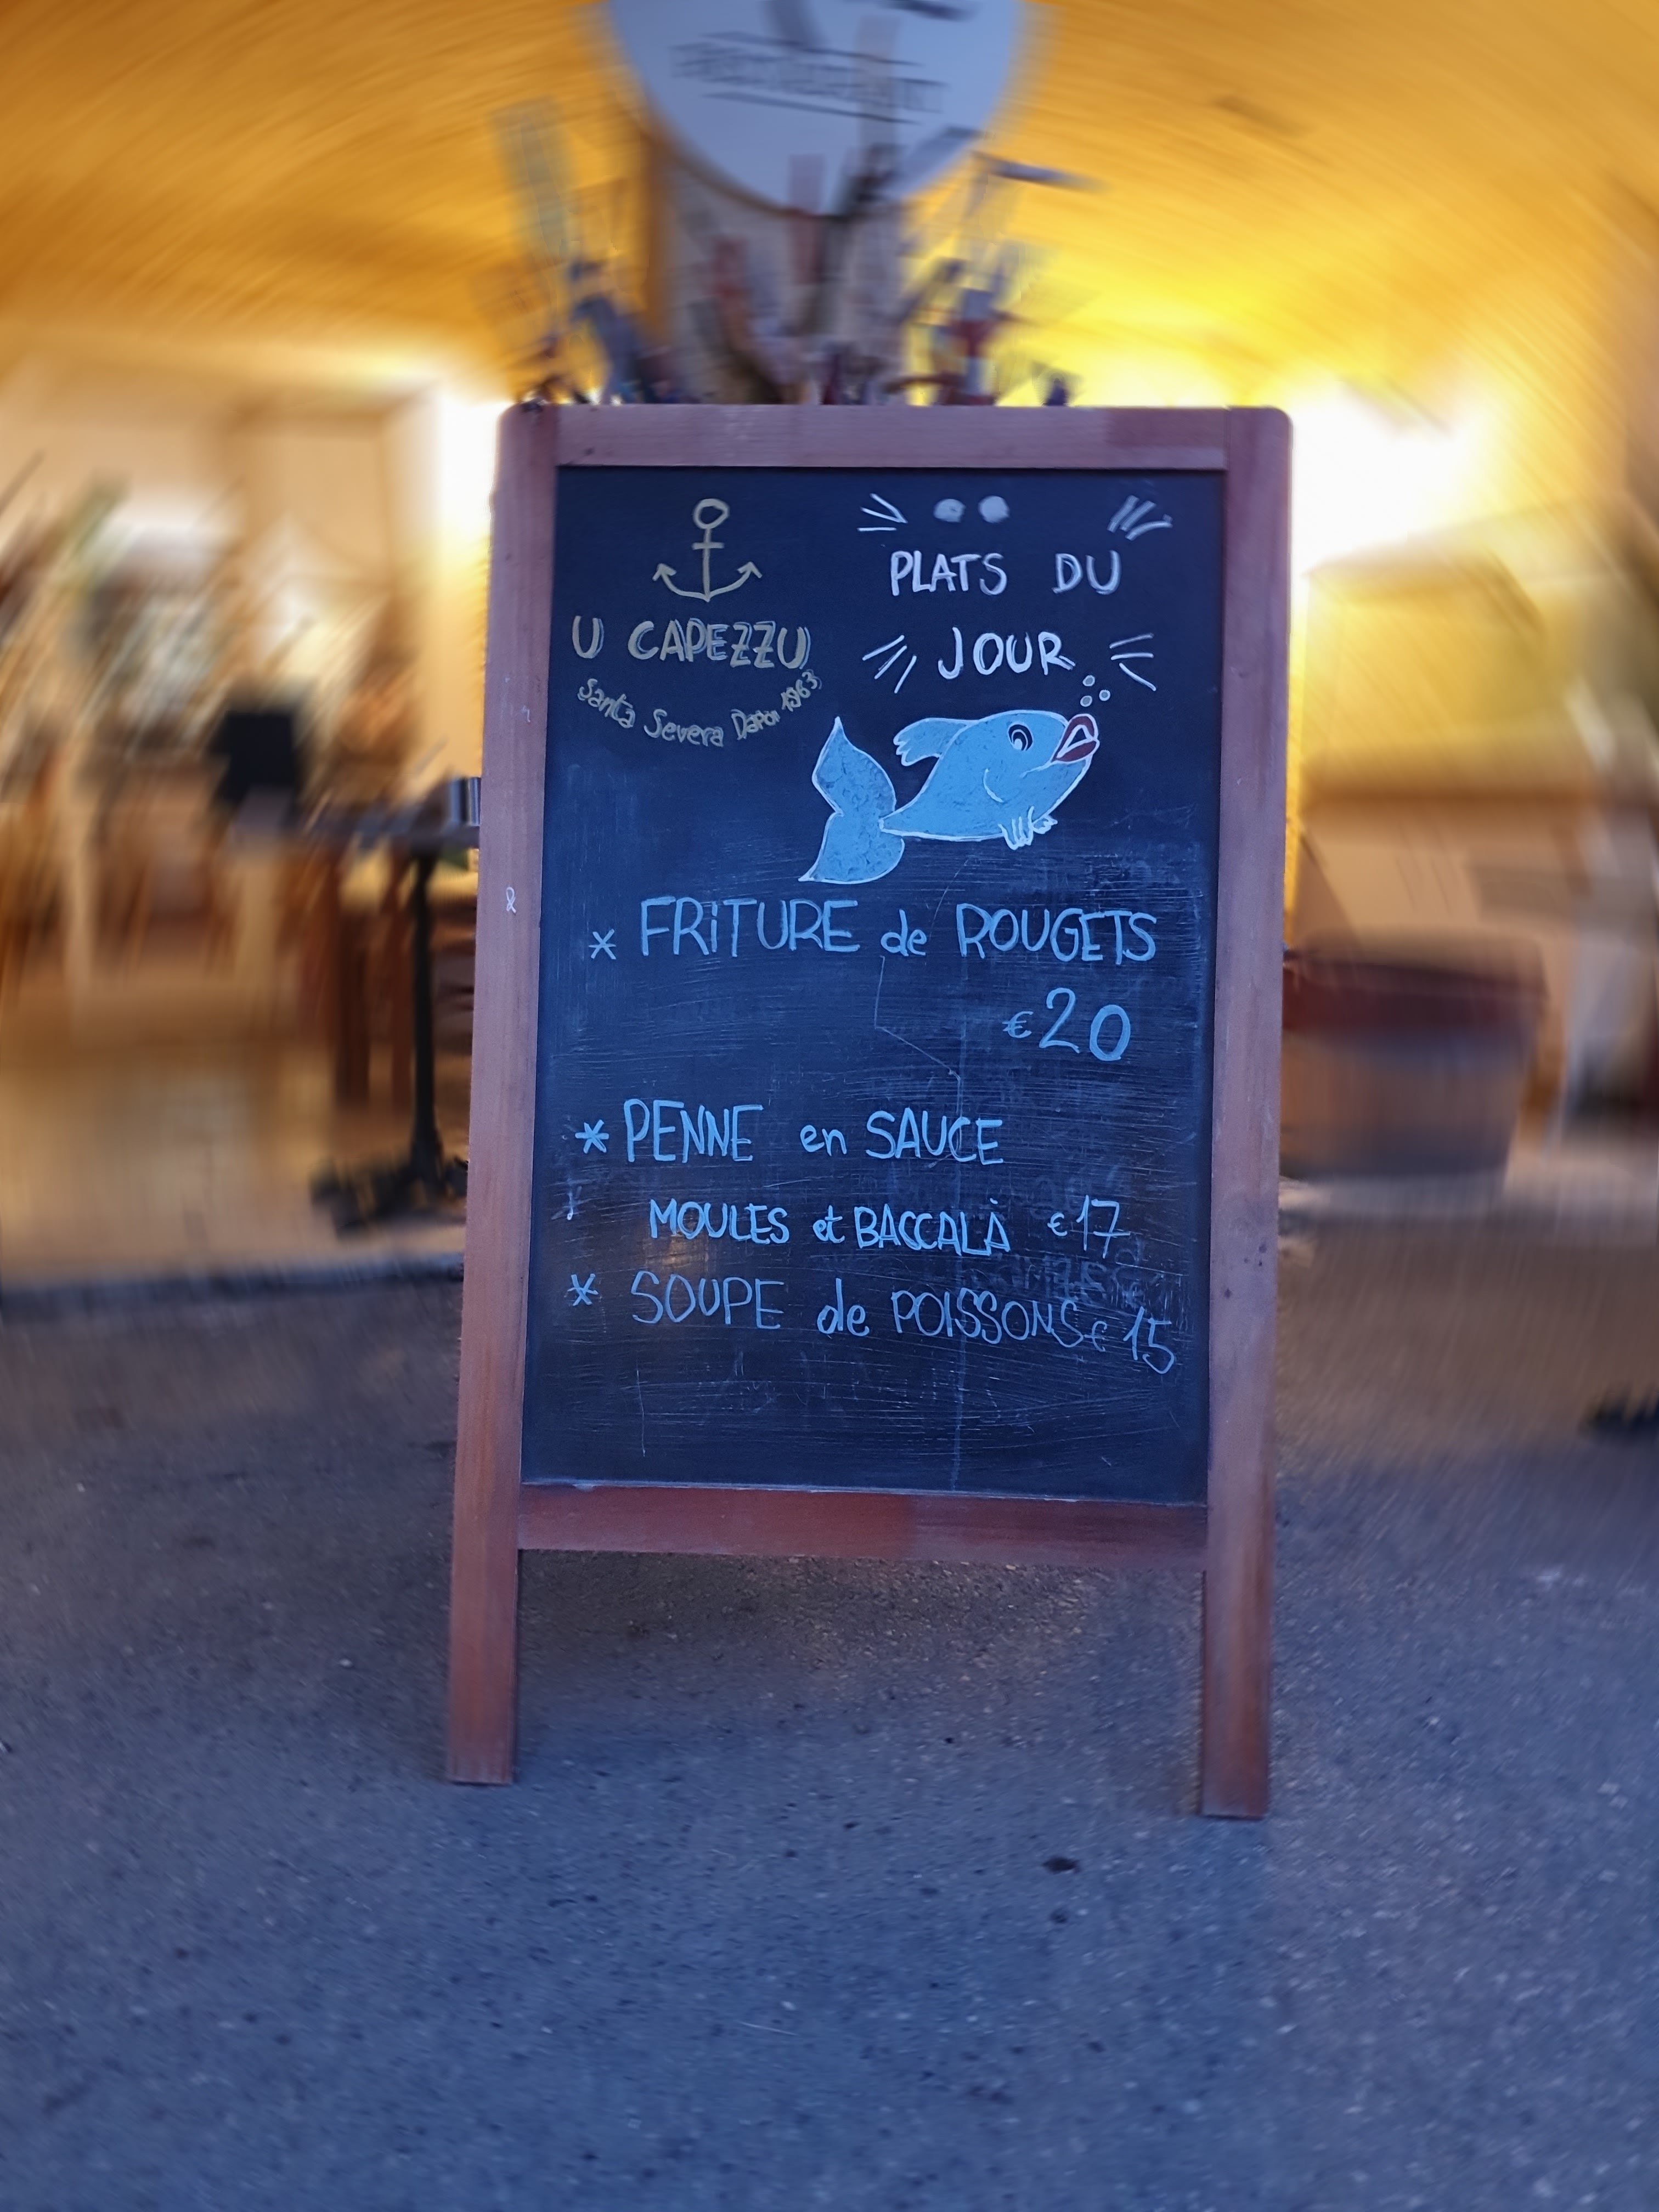 U CAPEZZU
Santa Severa Dapoi 1963
PLATS DU
JOUR
* FRiTURE de ROUGETS
€20
* PENNE en SAUCE
MOULES et BACCALÀ €17
* SOUPE de POISSONS € 15